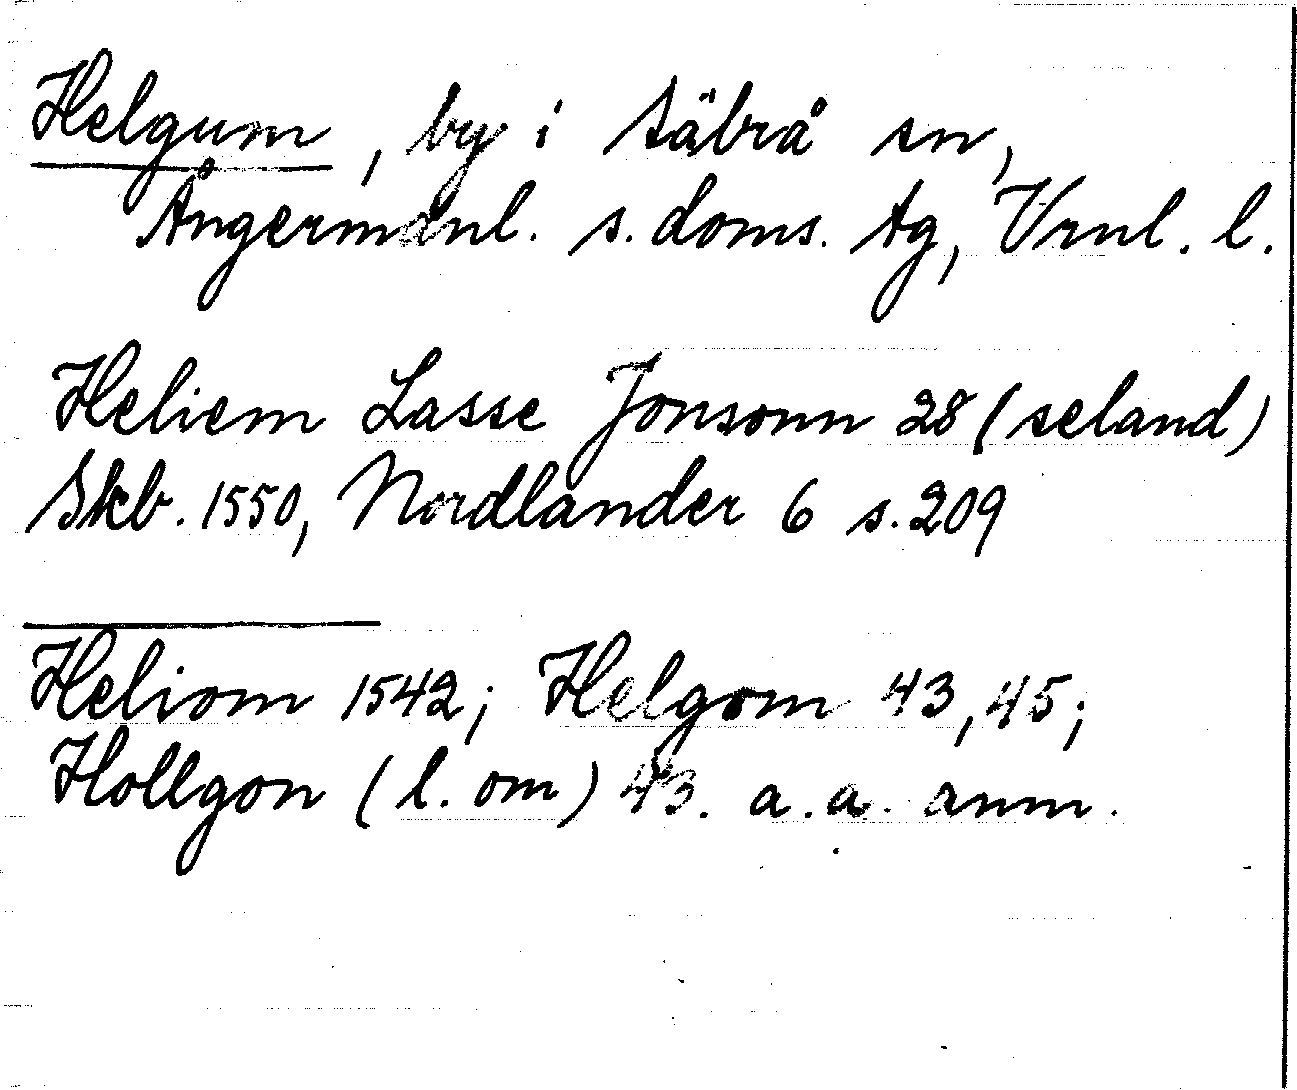 Helgum, by i Säbrå sn,
Ångermanl. s. doms. tg, Vrnl. l.
Heliem Lasse Jonsonn 28 (seland)
Skb. 1550, Nordlander 6 s. 209
Heliom 1542; Helgom 43, 45;
Hollgon (l. om) 43. a. a. anm.